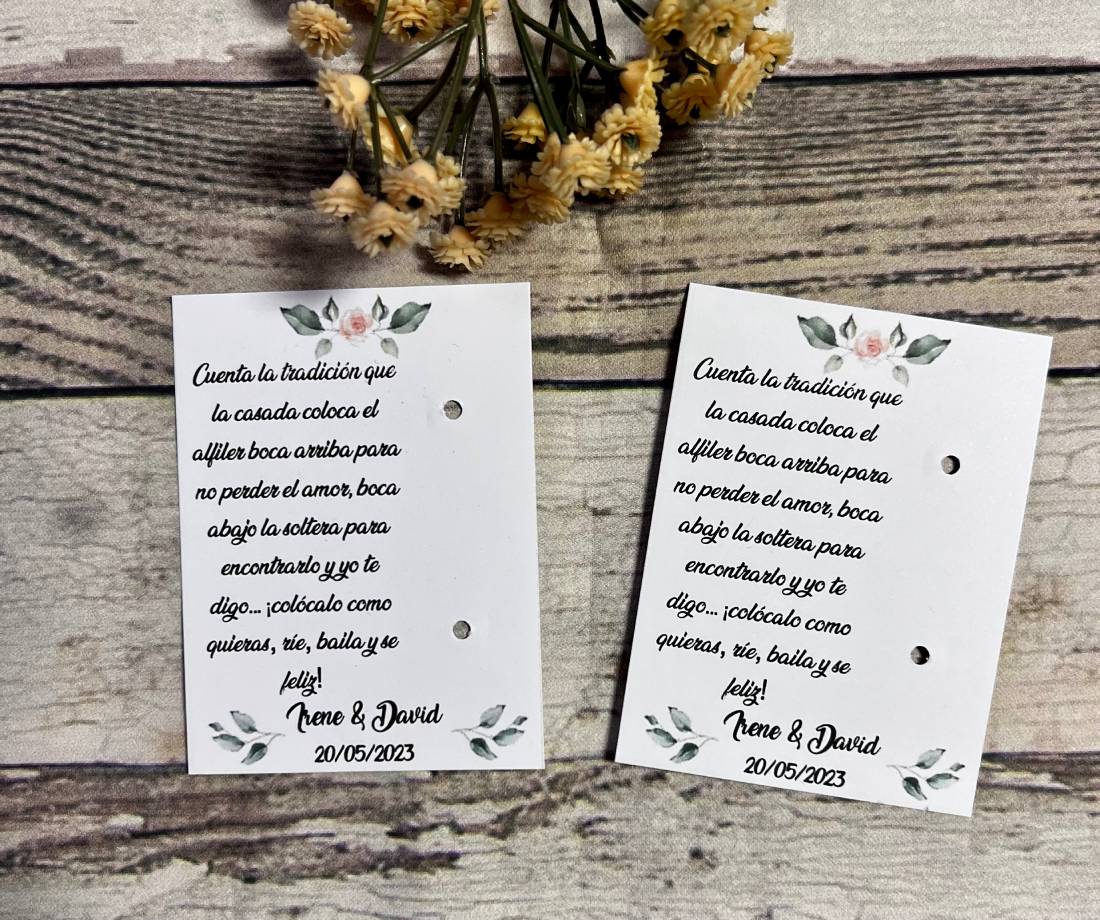 Cuenta la tradición que
la casada coloca el
alfiler boca arriba para
no perder el amor, boca
abajo la soltera para
encontrarlo y yo te
digo... ¡colócalo como
quieras, ríe, baila y se
feliz!
Irene & David
20/05/2023
Cuenta la tradición que
la casada coloca el
alfiler boca arriba para
no perder el amor, boca
abajo la soltera para
encontrarlo y yo te
digo... ¡colócalo como
quieras, ríe, baila y se
feliz!
Irene & David
20/05/2023